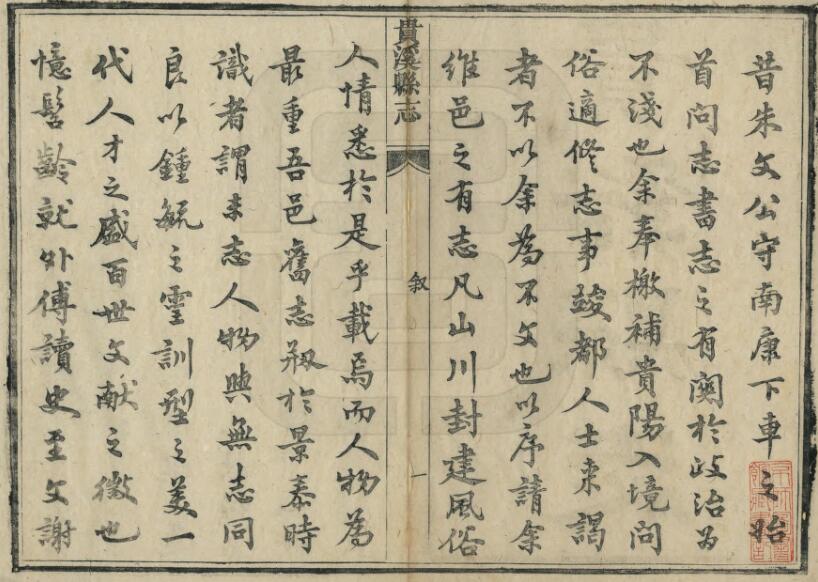 昔朱文公守南康下車之始
首問志書志之有關於政治為
不淺也余奉檄補貴陽入境問
俗適修志事竣都人士來謁
者不以余為不文也以序請余
維邑之有志凡山川封建風俗
貴溪縣志
叙
一
人情悉於是乎載焉而人物為
最重吾邑舊志刱於景泰時
識者謂未志人物與無志同
良以鍾毓之靈訓型之美一
代人才之盛百世文献之徵也
憶髫齡就外傅讀史至文謝